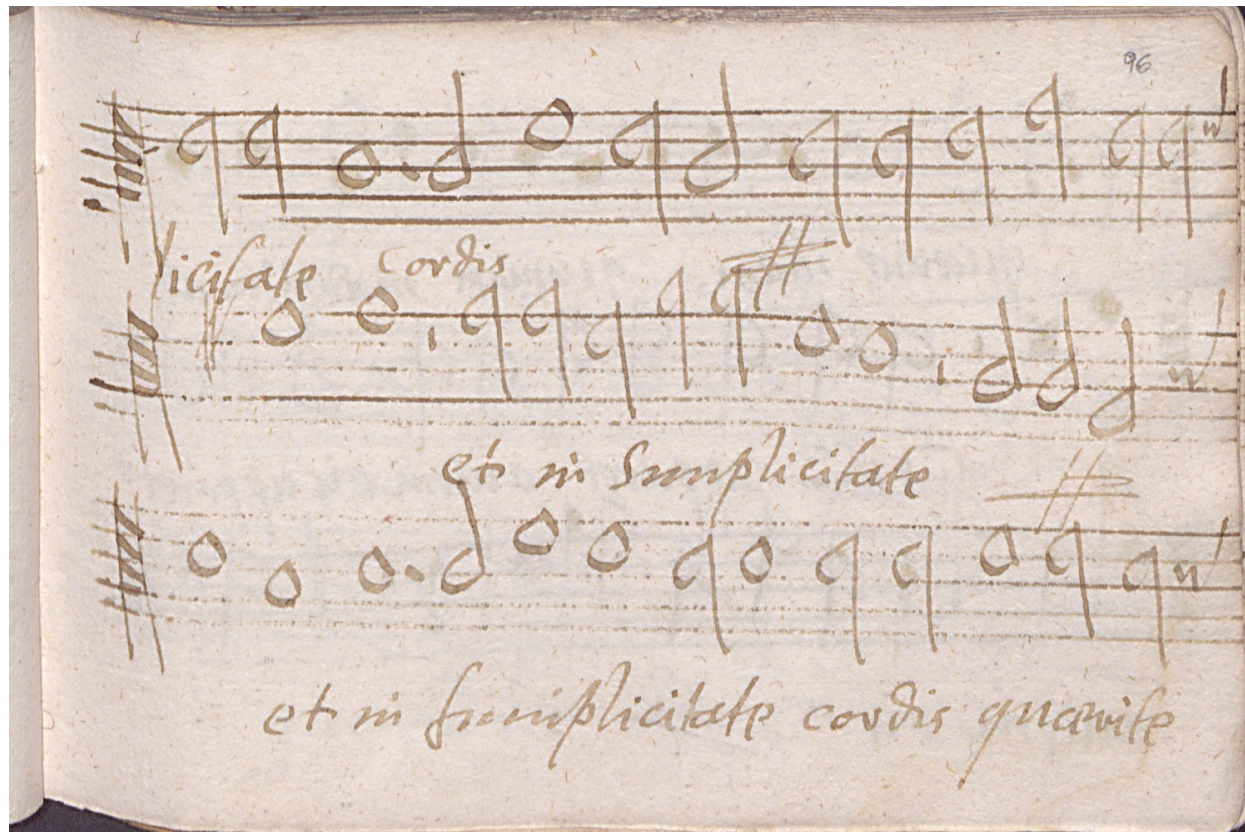 96
licitate cordis
et in simplicitate
et in simplicitate cordis quaerite